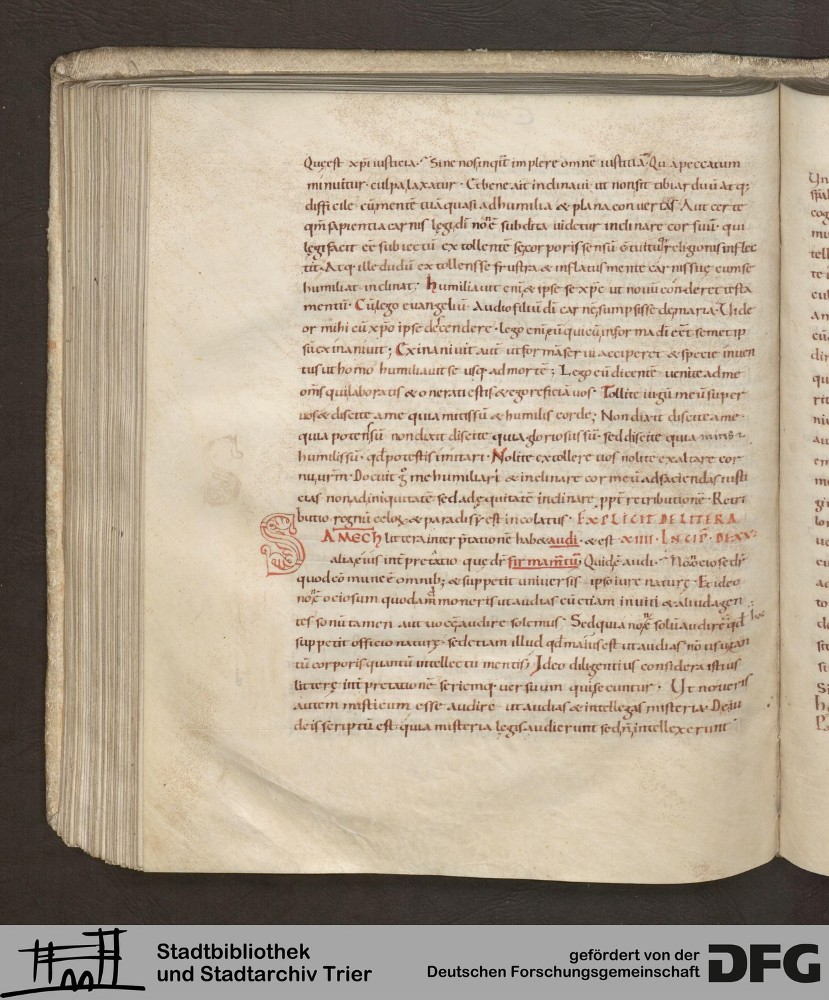 Quę est xp̄i iusticia. Sine nos inquit implere omnē iusticiā. Qui a peccatum
minuitur. culpa laxatur. Et bene ait inclinaui. ut non sit tibi arduū atq;
difficile cū mentē tuā quasi ad humilia & plana conuertas. Aut certe
qm̄ sapientia carnis legi dī non ē subdita uidetur inclinare cor suū. qui
legi facit eē subiectū extollentē se corporis sensū religionis inflec
tit. Atq; ille dudū extollens se frustra & inflatus mente carnis suę cum se
humiliat inclinat; humiliauit enī & ipse se xp̄c ut nouū conderet testa
mentū. Cū lego euangeliū. Audio filiū dī carnē sumpsisse de maria. Uide
or mihi cū xp̄o ipse descendere. lego enī eū qui cū in forma dī eēt semet ip
sū exinaniuit; Exinaniuit aut̄ ut formā serui acciperet & specie inuen
tus ut homo humiliauit se usq; ad mortē; Lego eū dicentē uenite ad me
om̄s qui laboratis & onerati estis & ego reficiā uos. Tollite iugū meū super
uos & discite a me quia mitis sū & humilis corde; Non dixit discite a me.
quia potens sū non dixit discite quia gloriosus sū. sed discite quia
humilis sū. qd̄ potestis imitari. Nolite extollere uos nolite exaltare cor
nu ur̄m. Docuit g̊ me humiliari & inclinare cor meū ad faciendas iusti
cias non ad iniquitatē sed ad ęquitatē inclinare ppt̄ retributionē. Retri
butio regnū cęloꝝ & paradisi est incolatus. EXPLICIT DE LITERA
SAMECH littera interp̄tationē habet audi. & est XIIII. INCIP̄. DE XV.
alia eius int̄pretatio quę dr̄ firmamtū. Quid ē audi. Non ocio se dr̄
quod cōmune ē omnib; & suppetit uniuersis ipso iure naturę. Et ideo
non ē ociosum quodam moneris ut audias cū etiam inuiti & aliud agen
tes sonū tamen aut uocē audire solemus. Sed quia non ē solū audire qd̄ hoc
suppetit officio naturę. sed etiam illud qd̄ maius est ut audias nō usu tan
tū corporis quantū intellectu mentis; Ideo diligentius considera istius
litterę int̄pretationē seriemq; uersuum qui secuntur. Ut noueris
autem misticum esse audire ut audias & intellegas misteria. De iu
deis scriptū est quia misteria legis audierunt sed n̄ intellexerunt
Stadtbibliothek
und Stadtarchiv Trier
gefördert von der
Deutschen Forschungsgemeinschaft
DFG